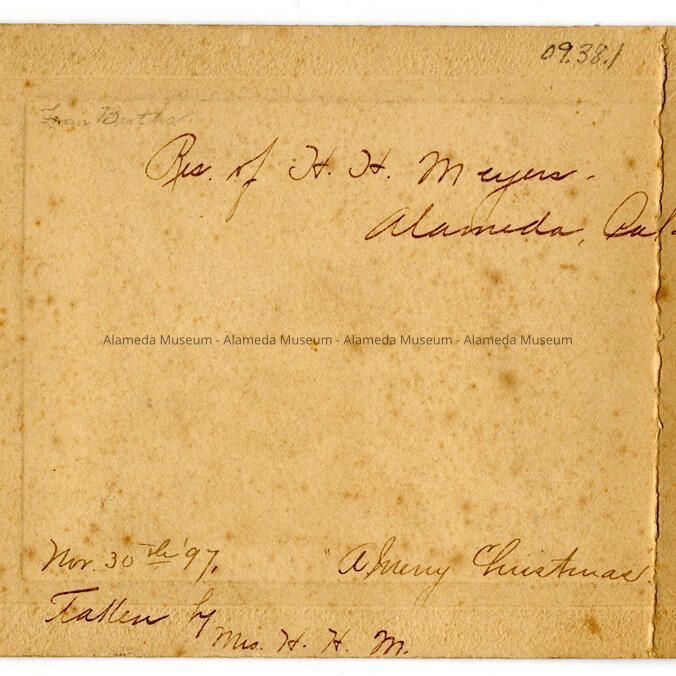 09.38.1
From Bertha
Res. of H. H. Meyers.
Alameda, Cal.
Alameda Museum - Alameda Museum - Alameda Museum - Alameda Museum
Nov. 30th '97.
"A Merry Christmas"
Taken by
Mrs. H. H. M.